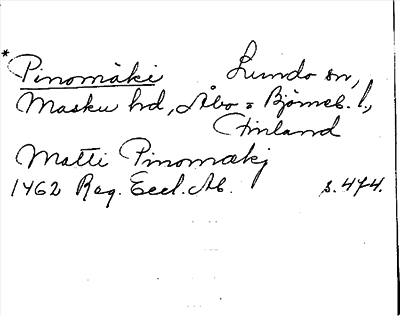 * Pinomäki Lundo sn,
Masku hd, Åbo o Björneb. l.,
Finland
Matti Pinomäki
1462 Reg. Eccl. Ab. s. 474.